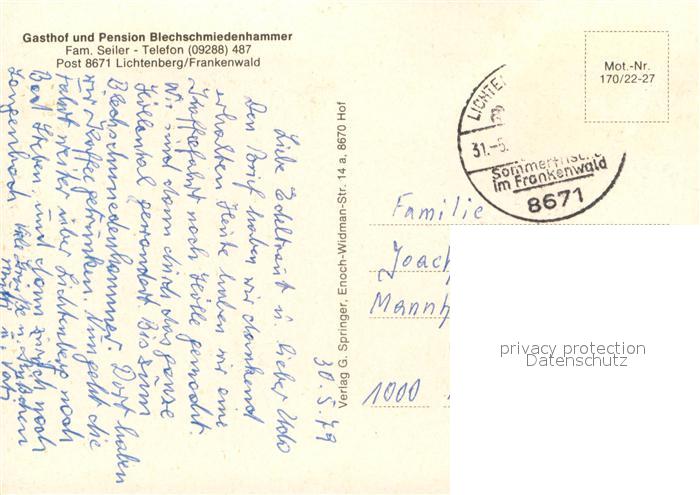 Gasthof und Pension Blechschmiedenhammer
Fam. Seiler - Telefon (09288) 487
Post 8671 Lichtenberg/Frankenwald
Mot.-Nr.
170/22-27
LICHTE
31.-5.
Sommerfrische
im Frankenwald
8671
Verlag G. Springer, Enoch-Widman-Str. 14 a, 8670 Hof
30.5.79
Liebe Edeltraut u. lieber Udo
Den Brief haben wir dankend
erhalten Heute haben wir eine
Kaffeefahrt nach Hölle gemacht.
Wir sind dann durch das ganze
Höllental gewandert Bis zum
Blechschmiedenhammer. Dort haben
wir Kaffee getrunken. Nun geht die
Fahrt weiter über Lichtenberg nach
Bad Steben. und dann zurück nach
Langenbach. Viele Grüße u.
Mutti u. Vati
Familie
Joach
Mannh
1000
privacy protection
Datenschutz